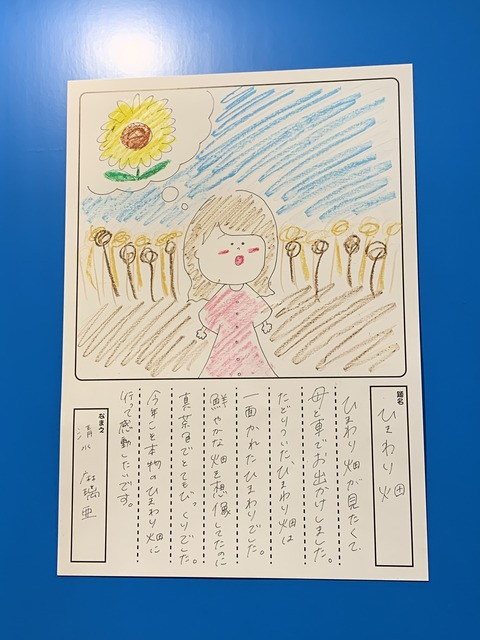 題名
ひまわり畑
ひまわり畑が見たくて、
母と車でお出かけしました。
たどりついた、ひまわり畑は
一面かれたひまわりでした。
鮮やかな畑を想像してたのに
真茶色でとてもびっくりでした。
今年こそ本物のひまわり畑に
行って感動したいです。
なまえ
清水 麻璃亜